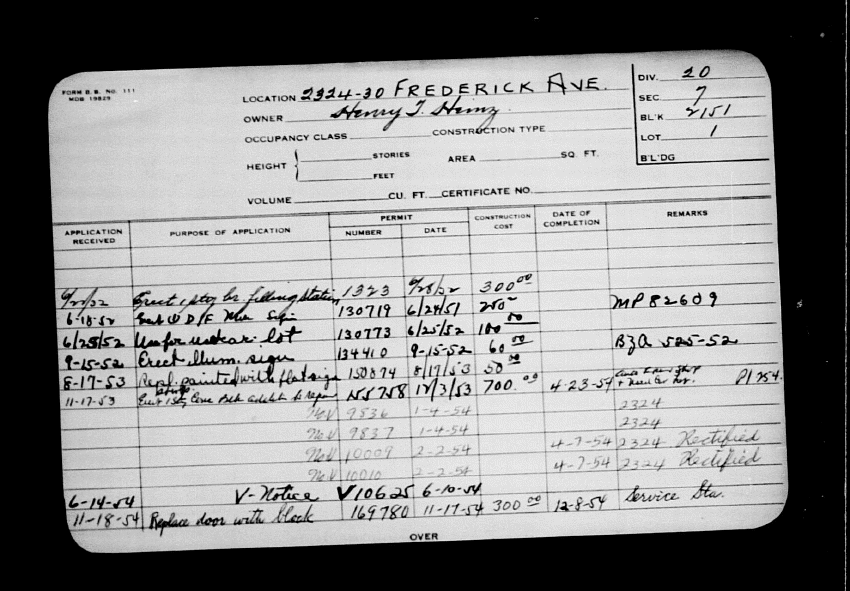 FORM B. B. NO. 111
MDB 19829
LOCATION 2324-30 FREDERICK AVE.
OWNER Henry J. Heinz
OCCUPANCY CLASS CONSTRUCTION TYPE
HEIGHT STORIES AREA SQ. FT.
FEET
VOLUME CU. FT. CERTIFICATE NO.
DIV. 20
SEC. 7
BL'K 2151
LOT 1
B'L'DG
APPLICATION RECEIVED PURPOSE OF APPLICATION PERMIT NUMBER DATE CONSTRUCTION COST DATE OF COMPLETION REMARKS
Erect 1 story br. filling station 1323 300.00
6-18-52 D/F sign 130719 6/24/51 MP 82609
6/25/52 Use for used car lot 130773 6/25/52 100.00 BZA 525-52
9-15-52 Erect illum. sign 134410 9-15-52 60.00
8-17-53 Repl. painted with flat sign 150874 8/17/53 50.00
11-17-53 Erect 1 sty Conc Blk 155758 12/3/53 700.00 4-23-54 P1254.
No V 9536 1-4-54 2324
No V 9837 1-4-54 2324
No V 10009 2-2-54 4-7-54 2324 Rectified
No V 10010 2-2-54 4-7-54 2324 Rectified
6-14-54 V-Notice V10625 6-10-54 Service Sta.
11-18-54 Replace door with block 169780 11-17-54 300.00 12-8-54
OVER